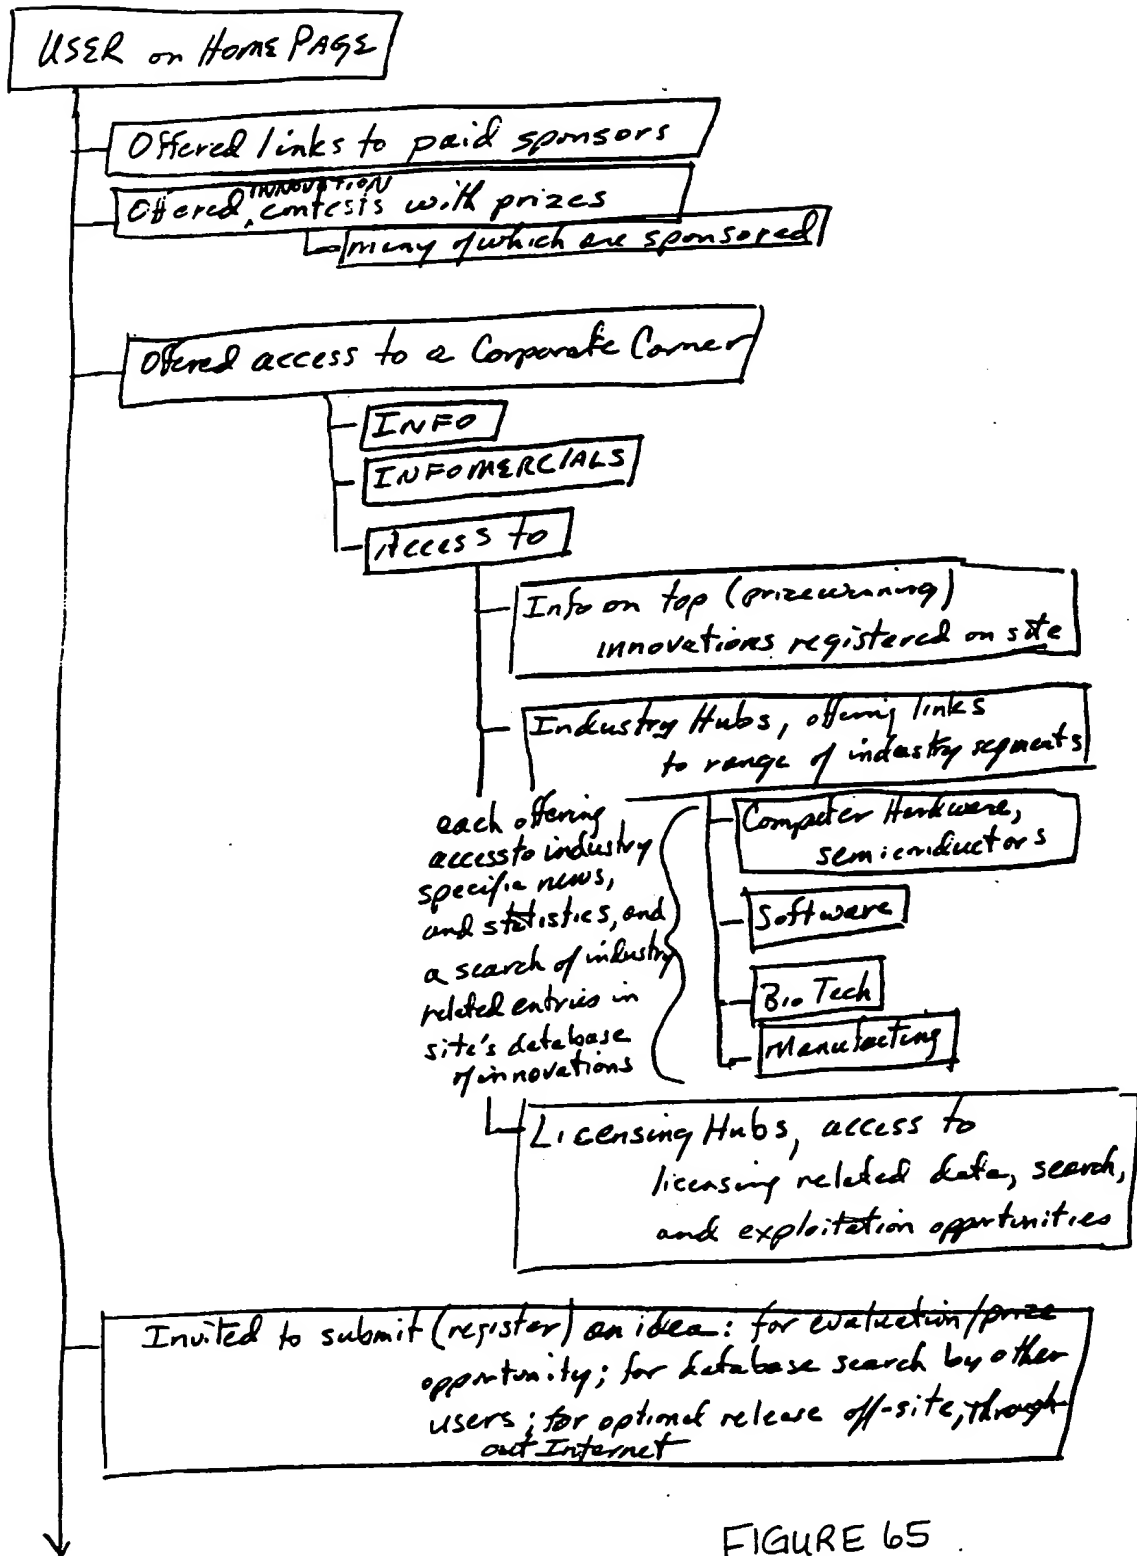 USER on HOME PAGE
Offered links to paid sponsors
INNOVATION
Offered contests with prizes
many of which are sponsored
Offered access to a Corporate Corner
INFO
INFOMERCIALS
Access to
Info on top (prizewinning)
innovations registered on site
Industry Hubs, offering links
to range of industry segments
each offering
access to industry
specific news,
and statistics, and
a search of industry
related entries in
site's database
of innovations
Computer Hardware,
semiconductors
Software
Bio Tech
Manufacting
Licensing Hubs, access to
licensing related data, search,
and exploitation opportunities
Invited to submit (register) an idea: for evaluation/prize
opportunity; for database search by other
users; for optional release off-site, through-
out Internet
FIGURE 65